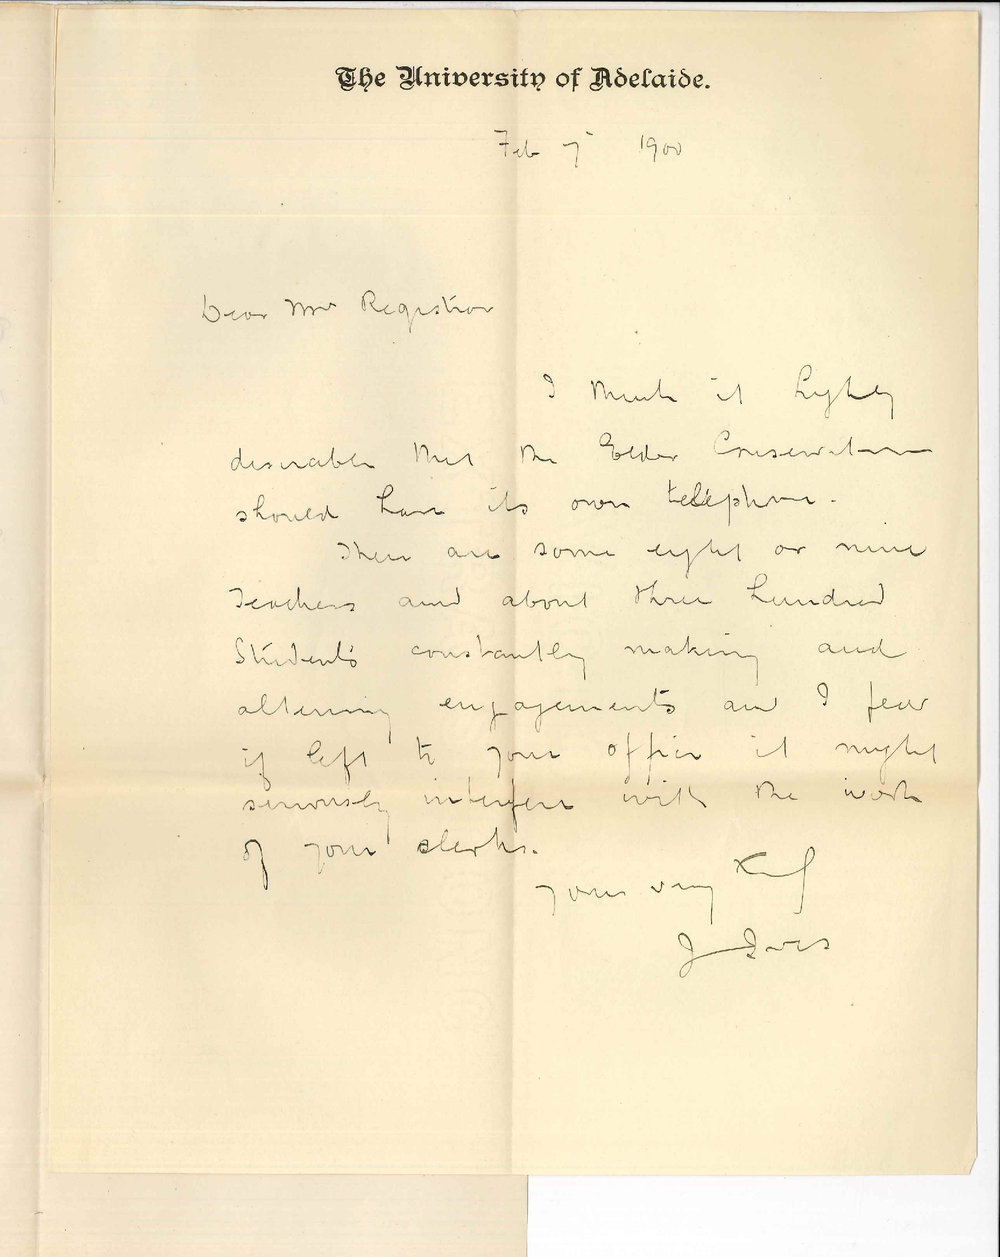 The University of Adelaide.
Feb 7 1900
Dear Mr Registrar
I think it highly
desirable that the Elder Conservatorium
should have its own telephone.
There are some eight or nine
Teachers and about three hundred
Students constantly making and
altering engagements and I fear
if left to your office it might
seriously interfere with the work
of your clerks.
Yours very
J Ives